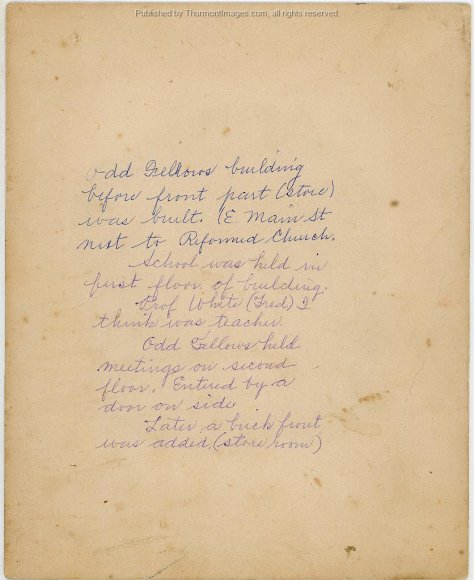 Published by ThurmontImages.com, all rights reserved.
Odd Fellows building
before front part (store)
was built. (E Main St
next to Reformed Church.
School was held in
first floor of building.
Prof White (Fred) I
think was teacher
Odd Fellows held
meetings on second
floor. Entered by a
door on side
Later a brick front
was added, (store room)